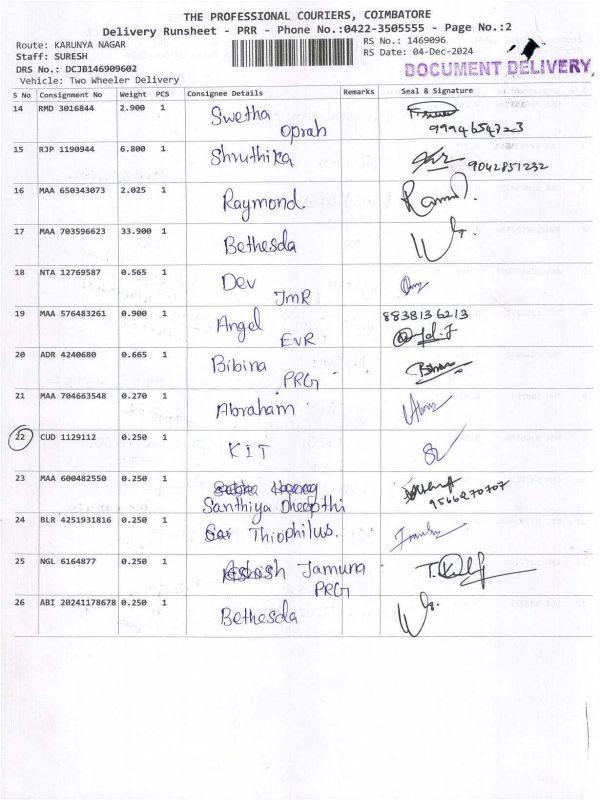 THE PROFESSIONAL COURIERS, COIMBATORE
Delivery Runsheet - PRR - Phone No.:0422-3505555 - Page No.:2
Route: KARUNYA NAGAR RS No.: 1469096
Staff: SURESH RS Date: 04-Dec-2024
DRS No.: DCJB146909602 DOCUMENT DELIVERY
Vehicle: Two Wheeler Delivery
S No Consignment No Weight PCS Consignee Details Remarks Seal & Signature
14 RMD 3016844 2.900 1 Swetha
Oprah 9994654723
15 RJP 1190944 6.800 1 Shruthika 9042851232
16 MAA 650343073 2.025 1 Raymond
17 MAA 703596623 33.900 1 Bethesda
18 NTA 12769587 0.565 1 Dev
JMR
19 MAA 576483261 0.900 1 Angel 8838136213
EVR
20 ADR 4240680 0.665 1 Bibina
PRG
21 MAA 704663548 0.270 1 Abraham
22 CUD 1129112 0.250 1 KIT
23 MAA 600482550 0.250 1
Santhiya Dheepthi 9566270707
24 BLR 4251931816 0.250 1 Thiophilus.
25 NGL 6164877 0.250 1 Jamuna
PRG
26 ABI 20241178678 0.250 1 Bethesda